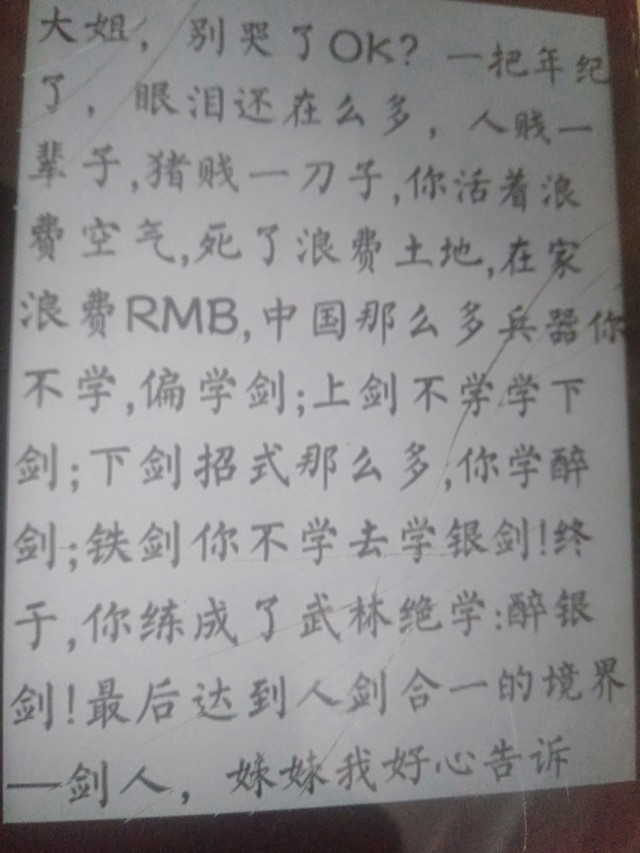 大姐，别哭了OK？一把年纪
了，眼泪还在么多，人贱一
辈子,猪贱一刀子,你活着浪
费空气,死了浪费土地,在家
浪费RMB,中国那么多兵器你
不学,偏学剑;上剑不学学下
剑;下剑招式那么多,你学醉
剑;铁剑你不学去学银剑!终
于,你练成了武林绝学:醉银
剑!最后达到人剑合一的境界
—剑人，妹妹我好心告诉